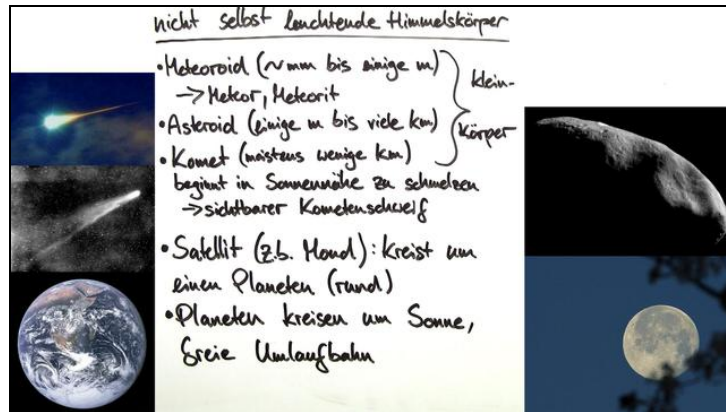 nicht selbst leuchtende Himmelskörper
• Meteoroid (~mm bis einige m)
→ Meteor, Meteorit
• Asteroid (einige m bis viele km)
• Komet (meistens wenige km)
klein-
körper
beginnt in Sonnennähe zu schmelzen
→ sichtbarer Kometenschweif
• Satellit (z.b. Mond): kreist um
einen Planeten (rund)
• Planeten kreisen um Sonne,
freie Umlaufbahn